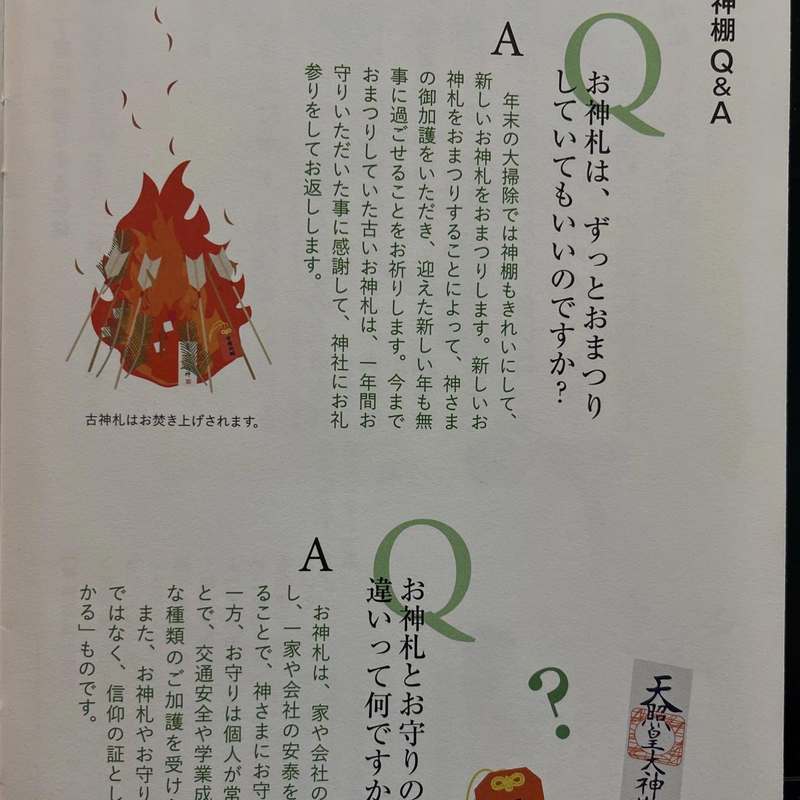 神棚 Q&A
Q
お神札は、ずっとおまつり
していてもいいのですか？
A
年末の大掃除では神棚もきれいにして、
新しいお神札をおまつりします。新しいお
神札をおまつりすることによって、神さま
の御加護をいただき、迎えた新しい年も無
事に過ごせることをお祈りします。今まで
おまつりしていた古いお神札は、一年間お
守りいただいた事に感謝して、神社にお礼
参りをしてお返しします。
古神札はお焚き上げされます。
Q
お神札とお守りの
違いって何ですか
A
お神札は、家や会社の
し、一家や会社の安泰を
ることで、神さまにお守
一方、お守りは個人が常
とで、交通安全や学業成
な種類のご加護を受け
また、お神札やお守り
ではなく、信仰の証とし
かる」ものです。
?
天照皇大神